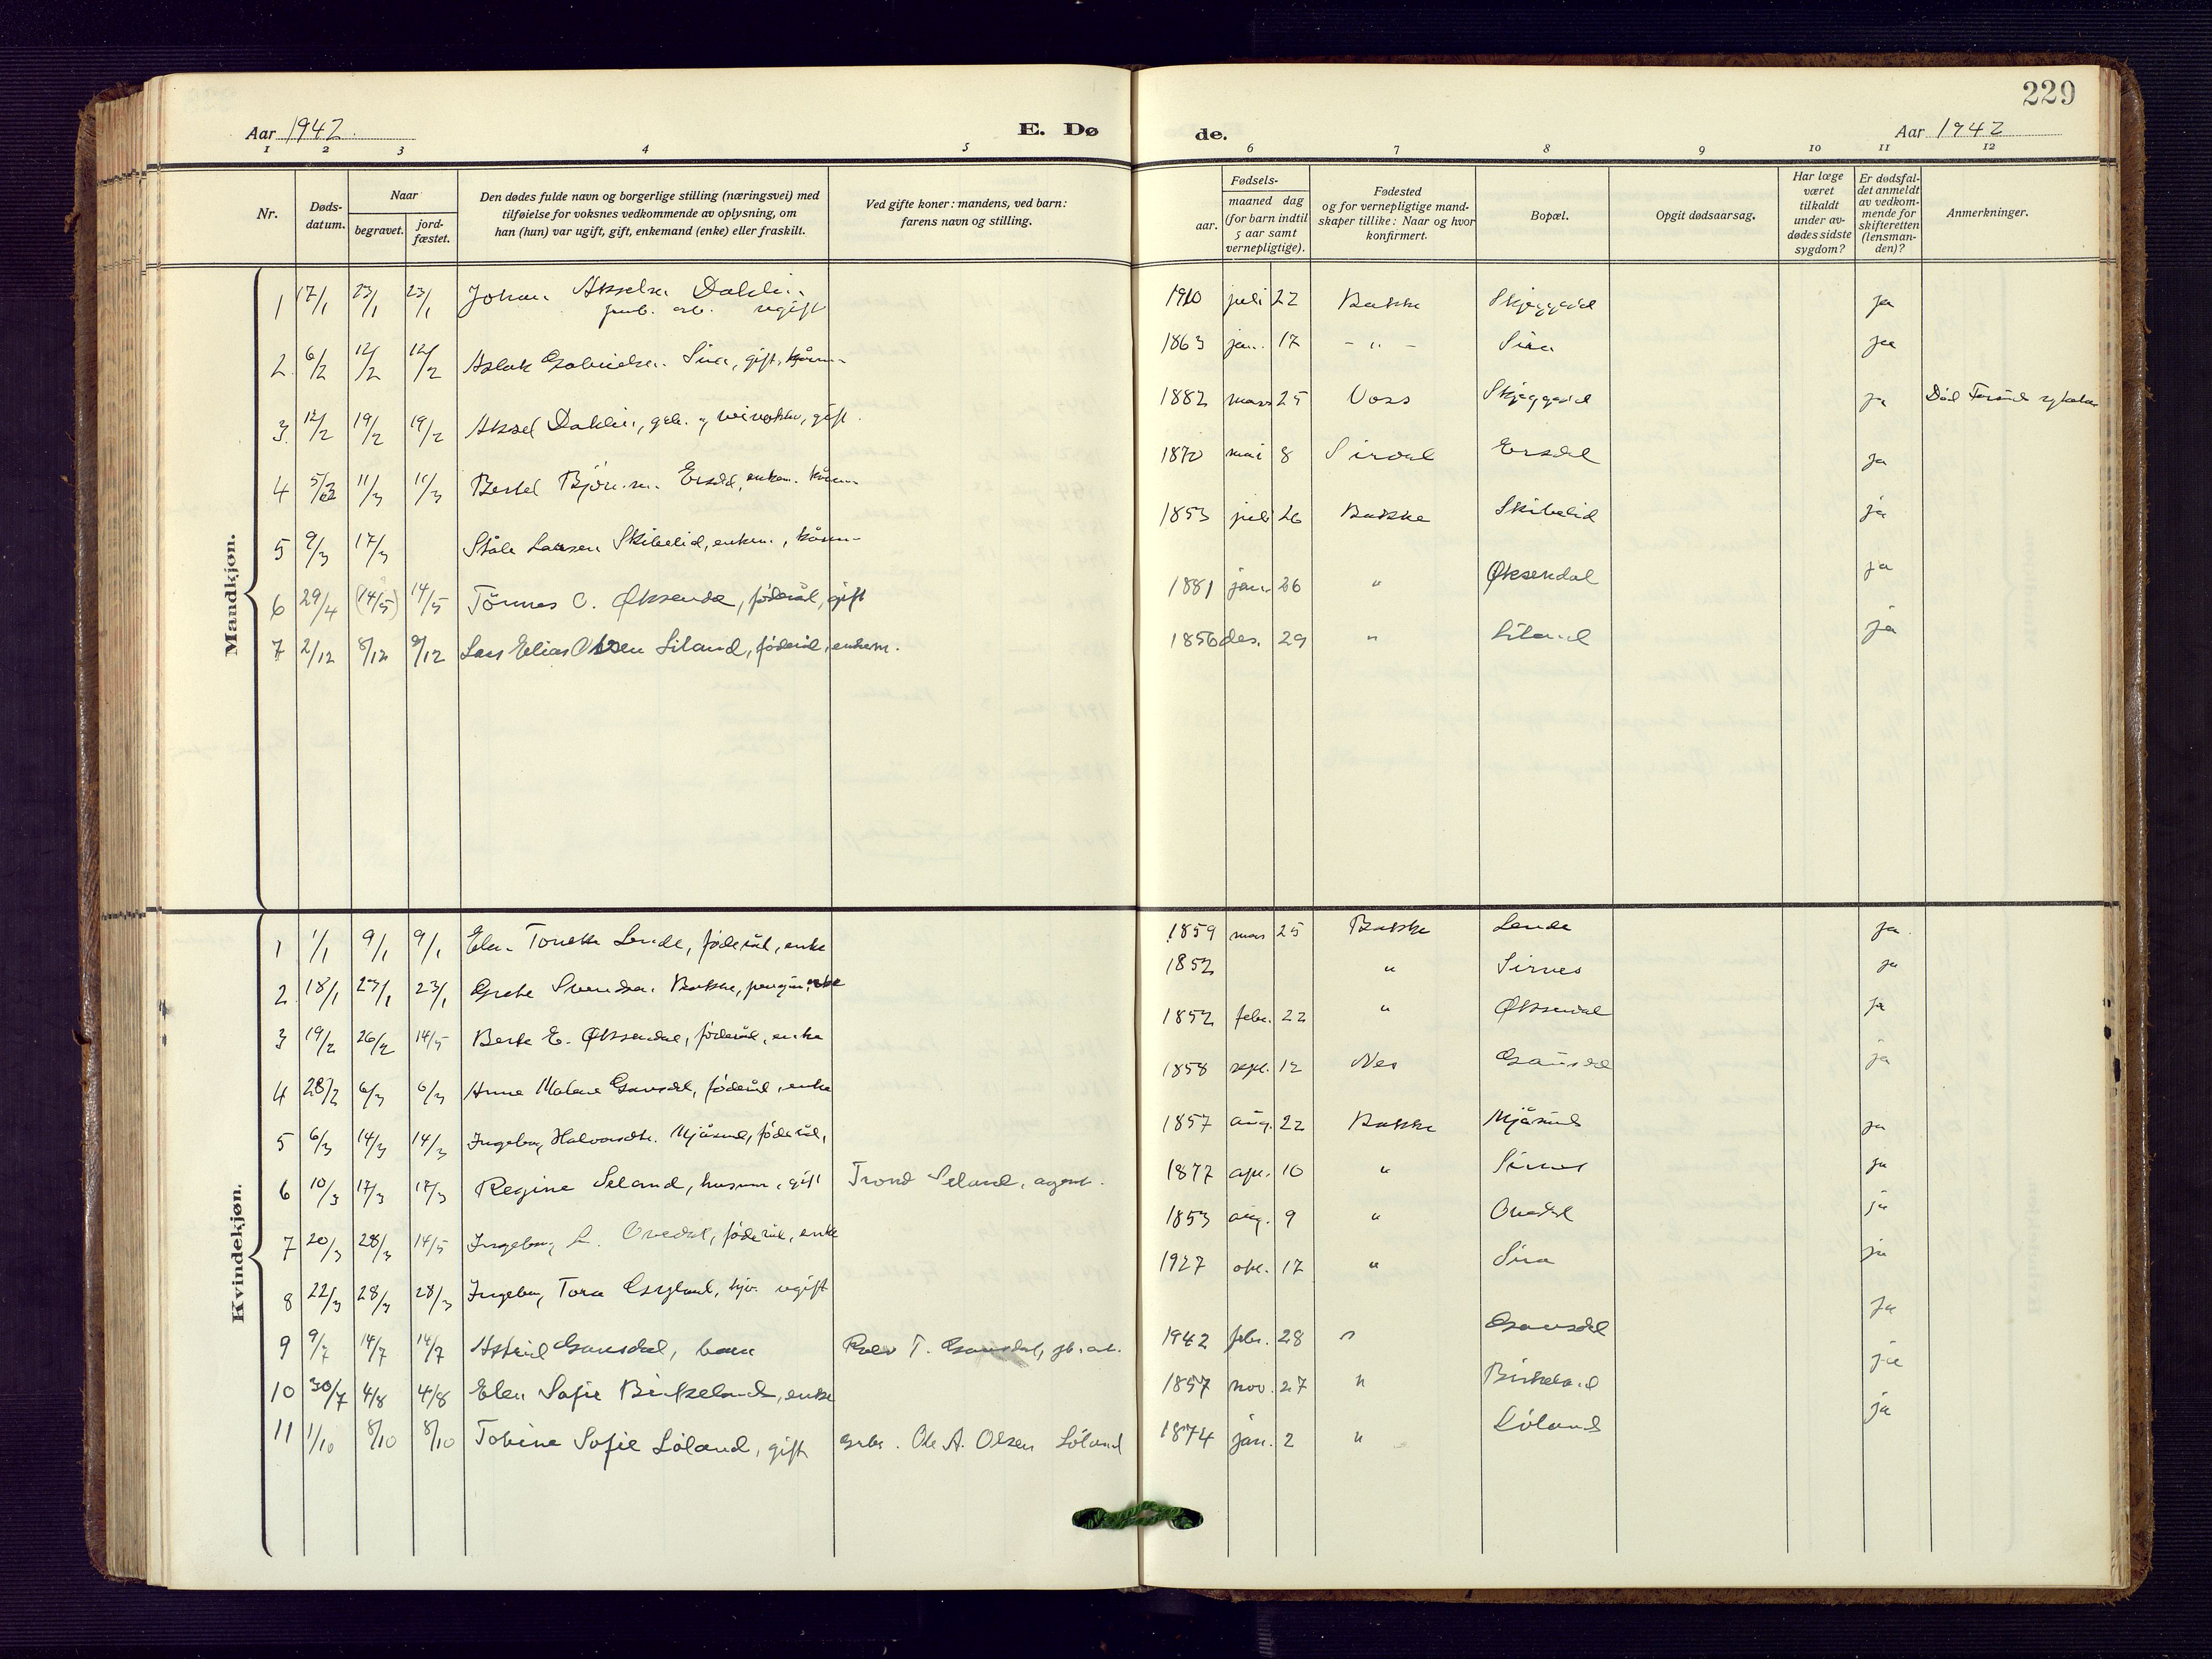 229
Aar 1942. E. Dø de. Aar 1942
1 2 3 4 5 6 7 8 9 10 11 12
Nr. Dødsdatum. Naar begravet. jordfæstet. Den dødes fulde navn og borgerlige stilling (næringsvei) med tilføielse for voksnes vedkommende av oplysning, om han (hun) var ugift, gift, enkemand (enke) eller fraskilt. Ved gifte koner: mandens, ved barn: farens navn og stilling. Fødsels- aar. maaned dag (for barn indtil 5 aar samt vernepligtige). Fødested og for vernepligtige mandskaper tillike: Naar og hvor konfirmert. Bopæl. Opgit dødsaarsag. Har læge været tilkaldt under avdødes sidste sygdom? Er dødsfaldet anmeldt av vedkommende for skifteretten (lensmanden)? Anmerkninger.
Mandkjøn.
1 17/1 23/1 23/1 Johan Akselsen Dahlin 1910 juli 22 Bakke Skjeggvid ja
arb. ugift
2 6/2 12/2 12/2 Aslak Gabrielsen Sira, gift, 1863 jan. 17 - " - Sira ja
3 12/2 19/2 19/2 Aksel Dahlin, gift. 1882 mars 25 Voss Skjeggvid ja Død
4 5/3 11/3 11/3 Bertel Ersdal, enkem. 1870 mai 8 Sirdal Ersdal ja
5 9/3 17/3 Ståle Larsen Skibelid, enkem., 1853 juli 26 Bakke Skibelid ja
6 29/4 (14/5) 14/5 Tønnes O. Øksendal, føderåd, gift 1881 jan. 26 " Øksendal ja
7 2/12 8/12 9/12 Lars Elias Olsen Liland, føderåd, enkem. 1856 des. 29 " Liland ja
Kvindekjøn.
1 1/1 9/1 9/1 Lende, føderåd, enke 1859 mars 25 Bakke Lende ja
2 18/1 23/1 23/1 Grete Svendsen Bakke, enke 1852 " Sirnes ja
3 19/2 26/2 14/5 Berte E. Øksendal, føderåd, enke 1852 febr. 22 " Øksendal ja
4 28/2 6/3 6/3 Anne Malene Gausdal, føderåd, enke 1858 sept. 12 Nes Gausdal ja
5 6/3 14/3 14/3 Ingeborg Halvorsdtr. Mjåsund, føderåd, 1857 aug. 22 Bakke Mjåsund ja
6 10/3 17/3 17/3 Regine Seland, husm., gift Trond Seland, agent. 1877 apr. 10 " Sirnes ja
7 20/3 28/3 14/5 Ingeborg L. Ovedal, føderåd, enke 1853 aug. 9 " Ovedal ja
8 22/3 28/3 28/3 Ingeborg Tora ugift 1927 17 " Sira ja
9 9/7 14/7 14/7 Astrid Gausdal, barn T. Gausdal, 1942 febr. 28 " Gausdal ja
10 30/7 4/8 4/8 Elen Sofie Birkeland, enke 1857 nov. 27 " Birkeland ja
11 1/10 8/10 8/10 Tobine Sofie Løland, gift grbr. Ole A. Olsen Løland 1874 jan. 2 " Løland ja